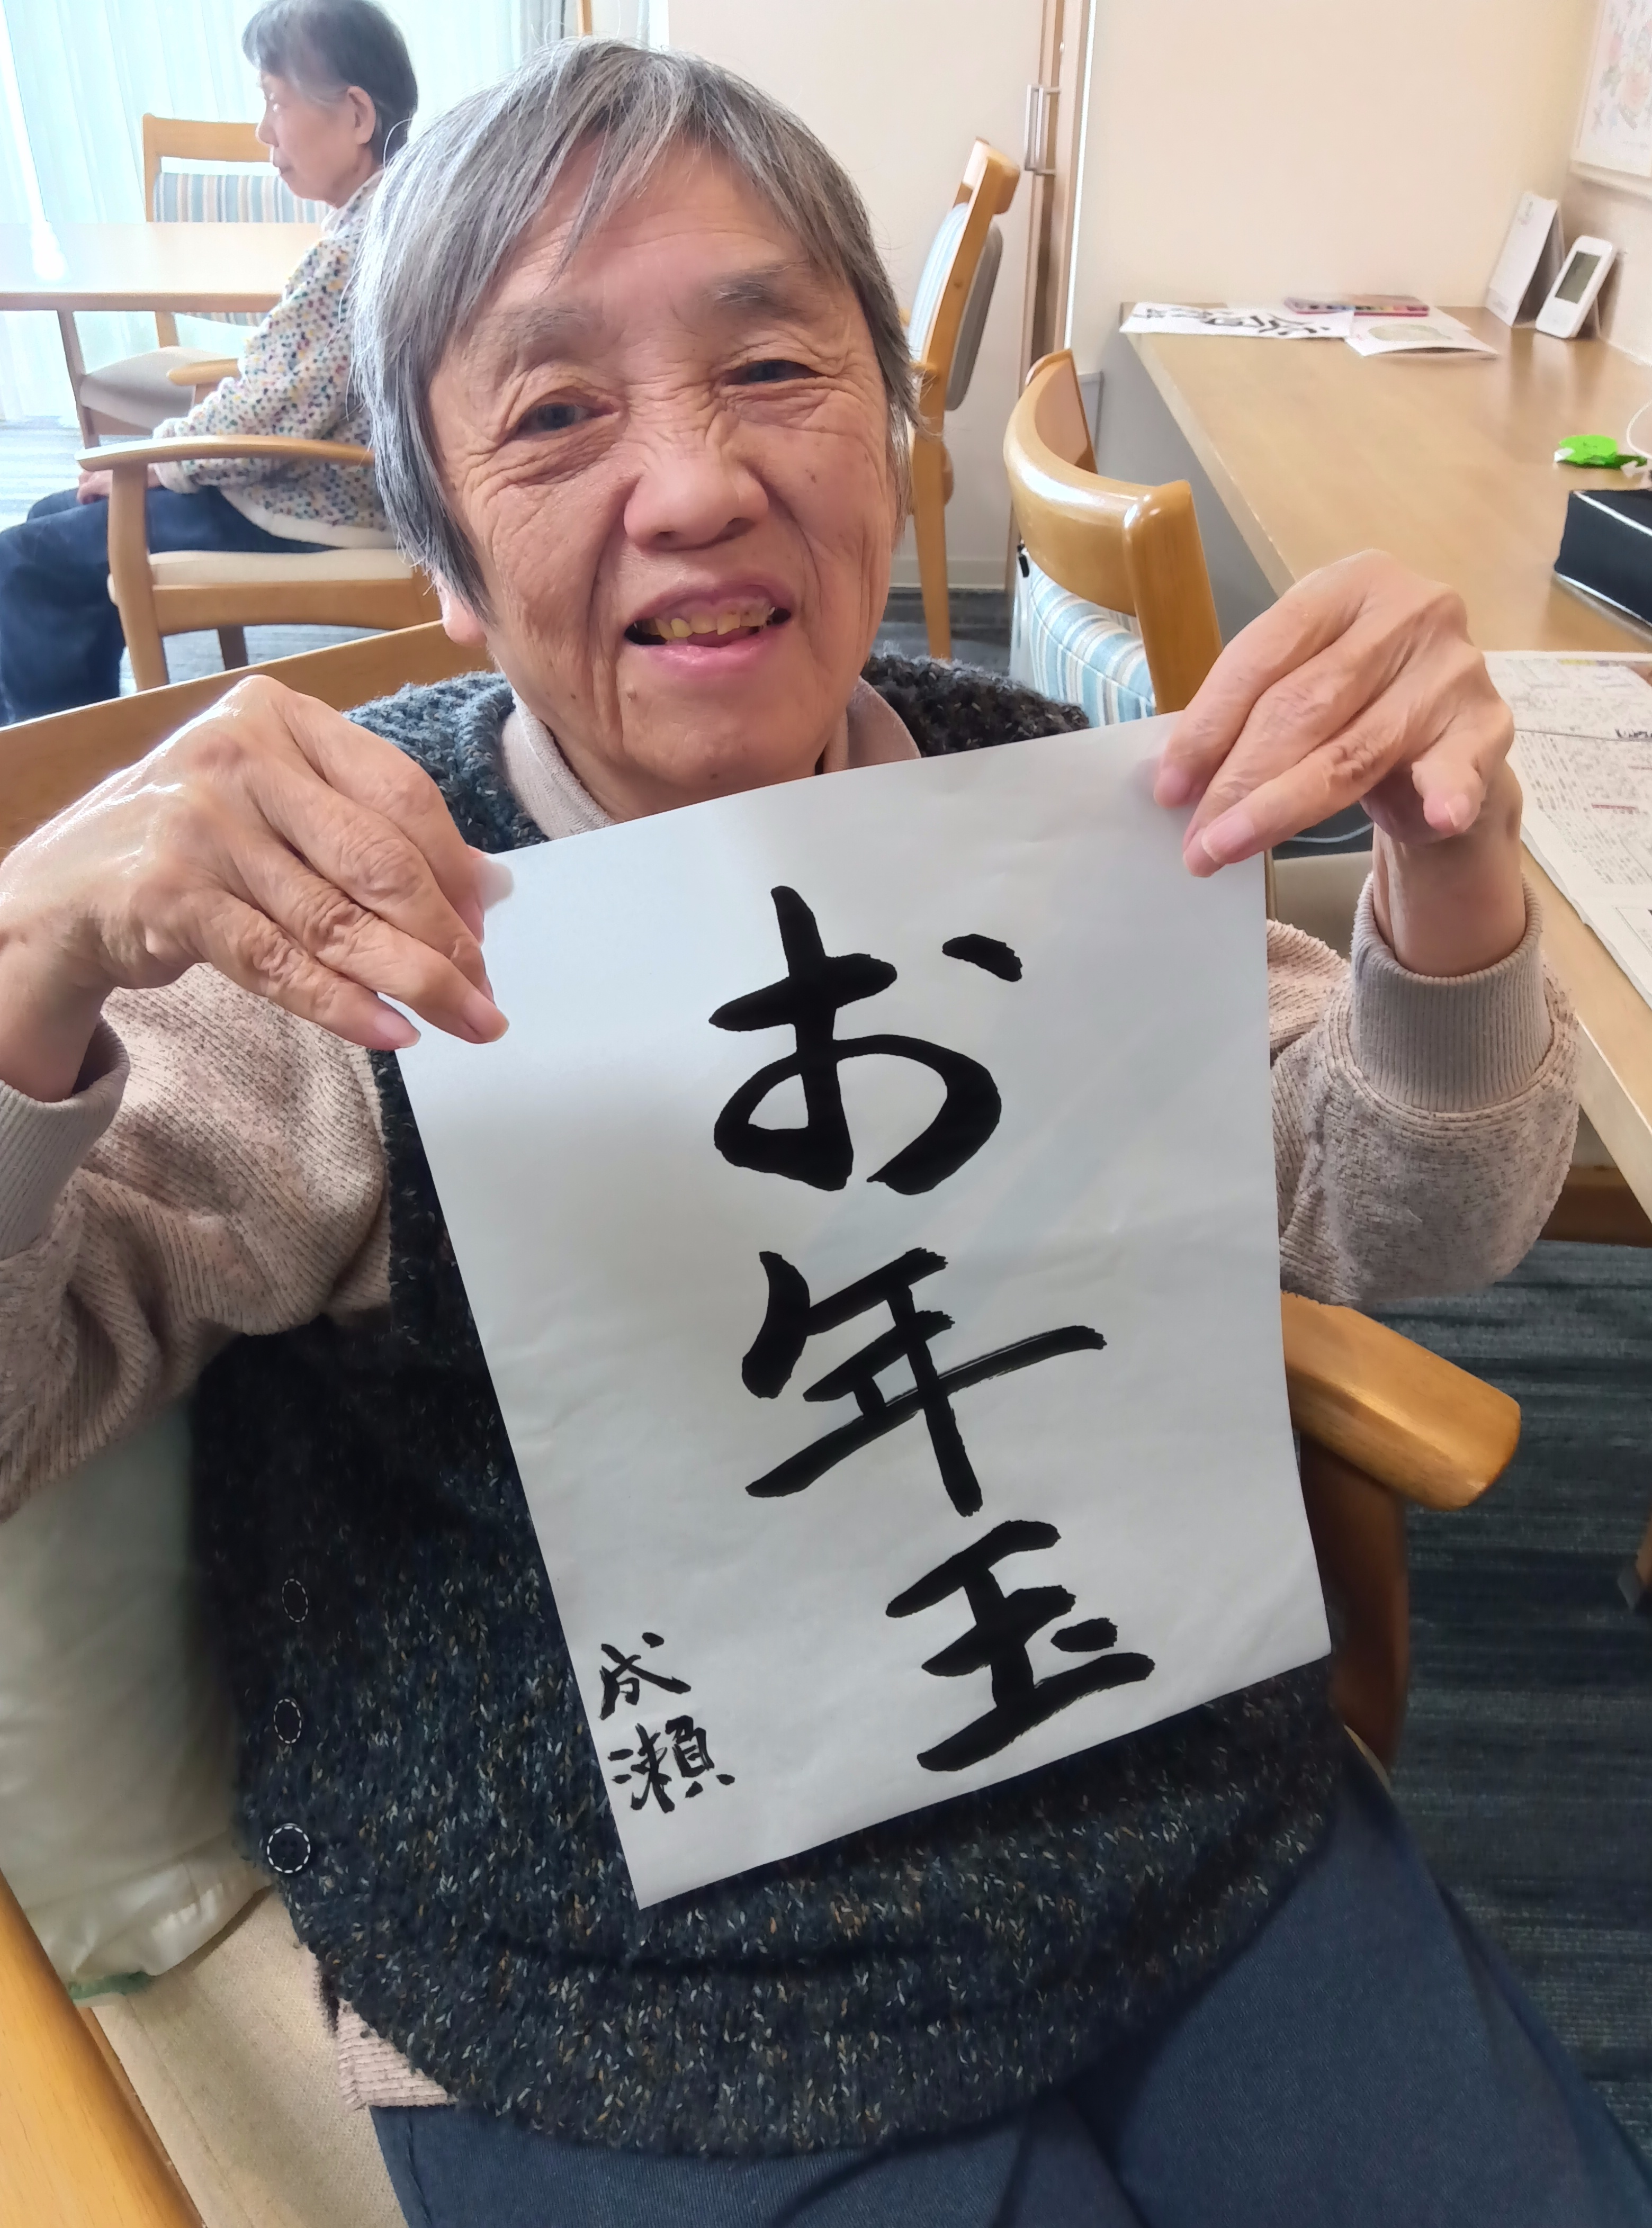 お年玉
成瀬